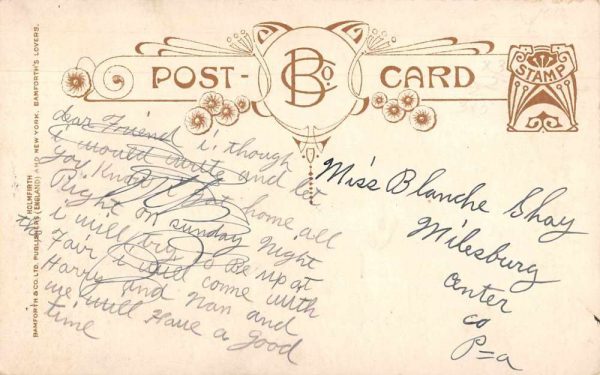 POST-CARD
B Co.
STAMP
BAMFORTH & CO. LTD. PUBLISHERS (ENGLAND) AND NEW YORK.
HOLMFIRTH
BAMFORTH'S LOVERS.
dear Friend i, though
i would write and let
you Know at home all
Right on sunday Night
i will try to Be up at
Fair i will come with
Harry and Nan and
we will Have a good
time
Miss Blanche Shay
Milesburg
Center
Co
P=a